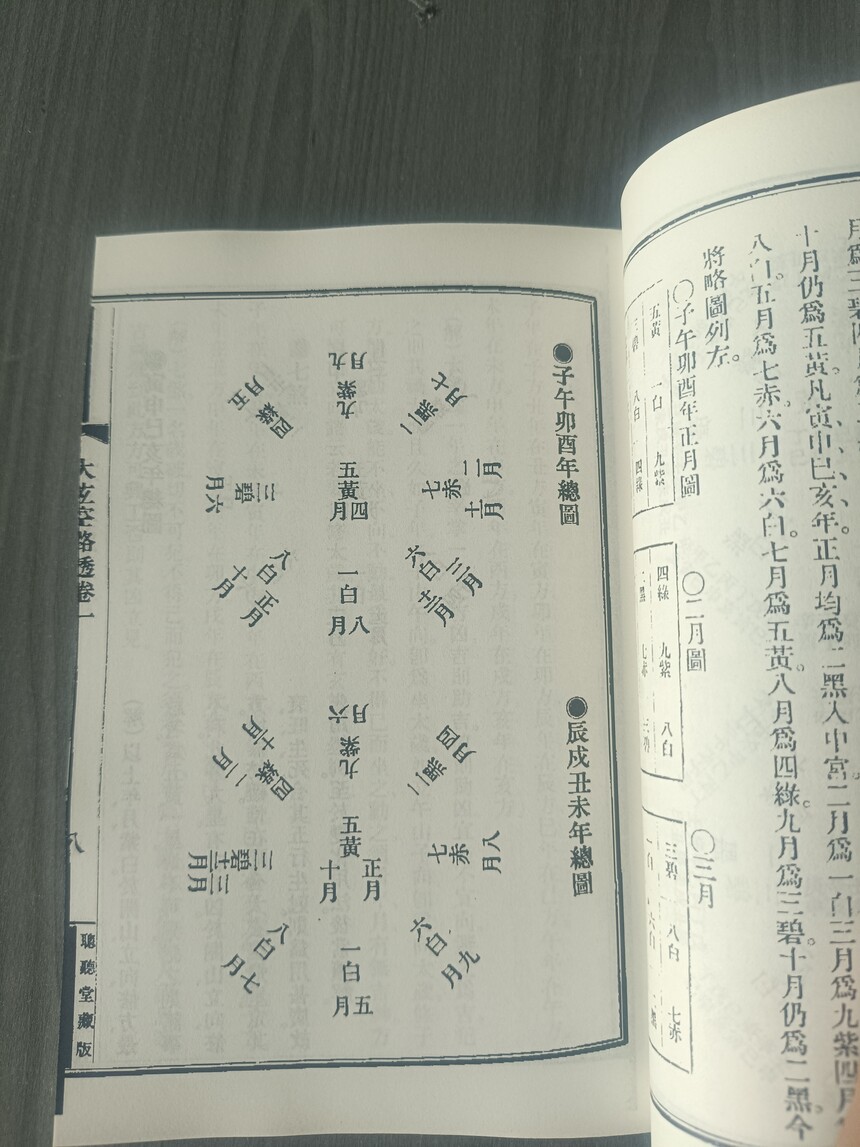 月爲三碧
十月仍爲五黃。凡寅申巳亥年。正月均爲二黑入中宮。二月爲一白三月爲九紫四月
八白。五月爲七赤。六月爲六白。七月爲五黃。八月爲四綠。九月爲三碧。十月仍爲二黑。今
將略圖列左。
〇子午卯酉年正月圖
五黃 一白 九紫
三碧 八白 四綠
〇二月圖
四綠 九紫 八白
二黑 七赤 三碧
〇三月
三碧 八白 七赤
一白 六白
●子午卯酉年總圖
二黑 七月
七赤 二月 十一月
六白 三月 十二月
九紫 九月
五黃 四月
一白 八月
四綠 五月
三碧 六月
八白 正月 十月
●辰戌丑未年總圖
二黑 四月
七赤 八月
六白 九月
九紫 六月
五黃 正月 十月
一白 五月
四綠 二月 十一月
三碧 三月 十二月
八白 七月
大玄空路透卷一
八
聰聽堂藏版